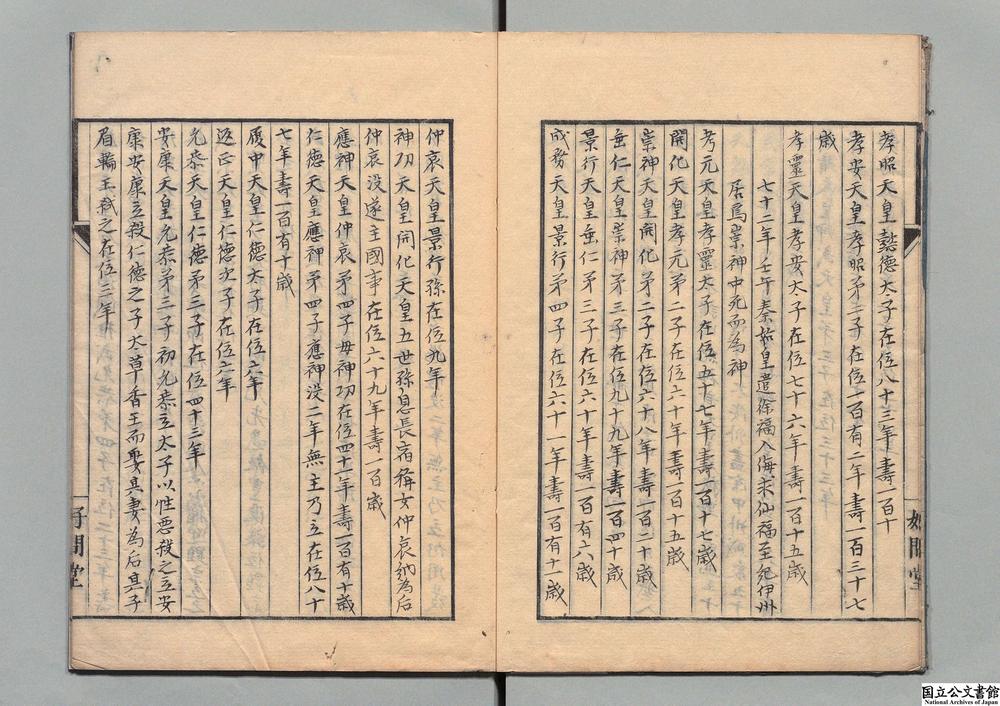 孝昭天皇懿德太子在位八十三年壽一百十
孝安天皇孝昭第三子在位一百有二年壽一百三十七
歲
孝靈天皇孝安太子在位七十六年壽一百十五歲
七十二年壬午秦始皇遣徐福入海求仙福至紀伊州
居焉崇神中死而為神
孝元天皇孝靈太子在位五十七年壽一百十七歲
開化天皇孝元第二子在位六十年壽一百十五歲
崇神天皇開化第二子在位六十八年壽一百二十歲
垂仁天皇崇神第三子在位九十九年壽一百四十歲
景行天皇垂仁第三子在位六十年壽一百有六歲
成務天皇景行第四子在位六十一年壽一百有十一歲
好問堂
仲哀天皇景行孫在位九年
神功天皇開化天皇五世孫息長宿祢女仲哀納為后
仲哀没遂主國事在位六十九年壽一百歲
應神天皇仲哀第四子母神功在位四十一年壽一百有十歲
仁德天皇應神第四子應神没二年無主乃立在位八十
七年壽一百有十歲
履中天皇仁德太子在位六年
返正天皇仁德次子在位六年
允恭天皇仁德第三子在位四十三年
安康天皇允恭第三子初允恭立太子以性惡殺之立安
康安康立殺仁德之子大草香王而娶其妻為后其子
眉輪王弒之在位三年
好問堂
国立公文書館
National Archives of Japan